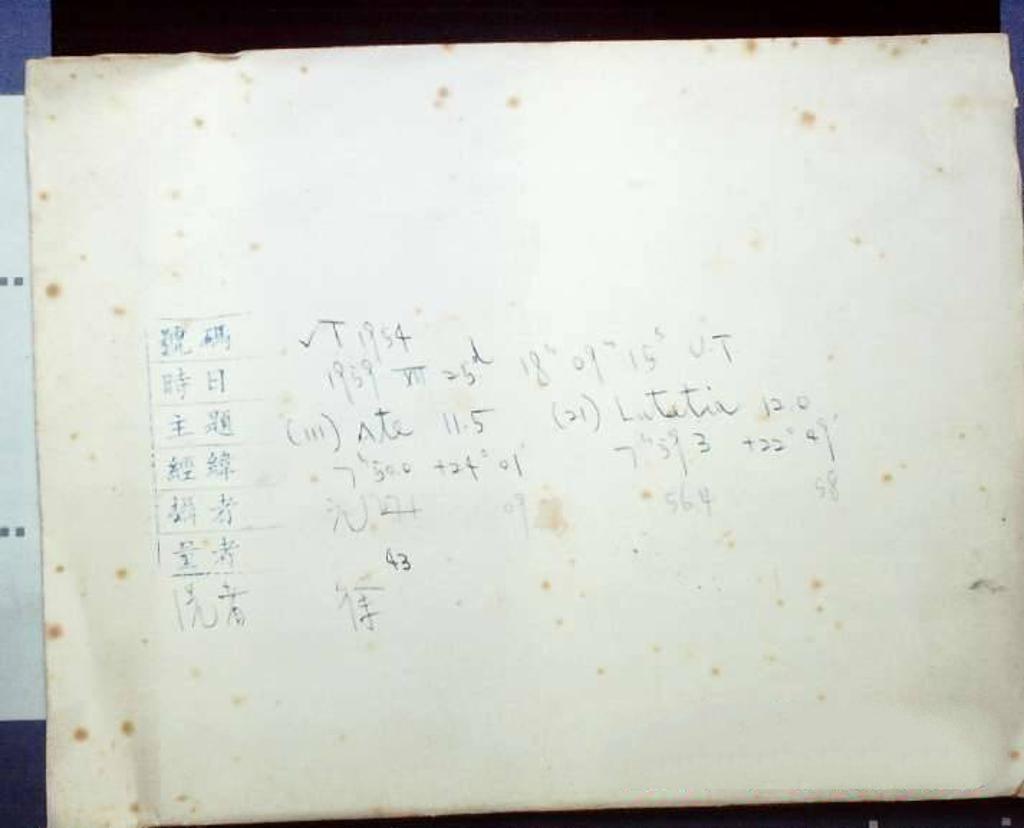 號碼 √T 1954
時日 1959 XII 25d 18h 09m 15s U.T
主題 (111) Ate 11.5 (21) Lutetia 12.0
經緯 7h 50.0 +24° 01' 7h 59.3 +22° 49'
攝者 沈 09 56.4 58
量者 43
洗者 徐